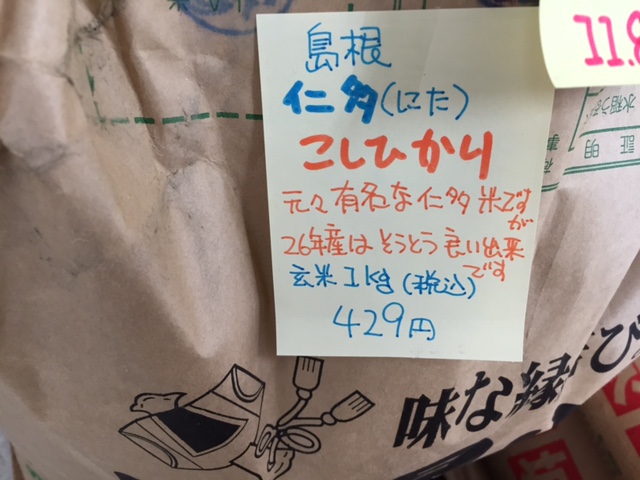 島根
仁多(にた)
こしひかり
元々有名な仁多米ですが
26年産はそうとう良い出来です
玄米1kg(税込)
429円
11.8
証明
味な縁